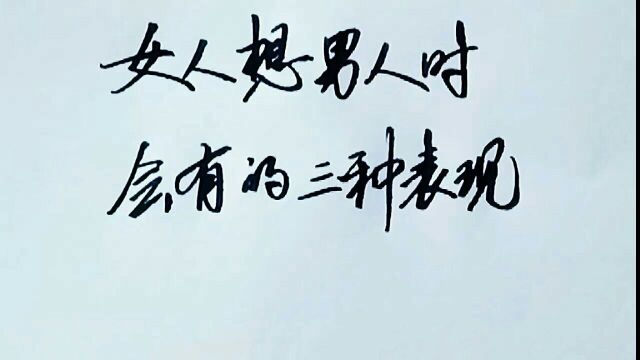 女人想男人时
会有的三种表现